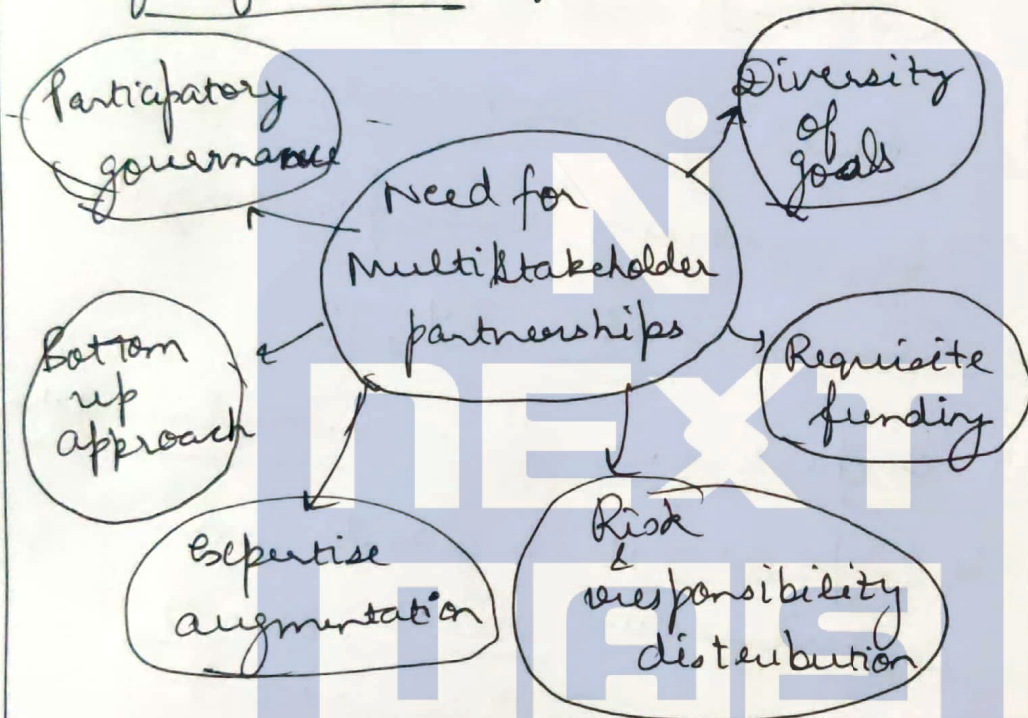 Participatory
governance
Diversity
of
goals
Need for
Multistakeholder
partnerships
Bottom
up
approach
Requisite
funding
Expertise
augmentation
Risk
&
responsibility
distribution
NEXT
IAS